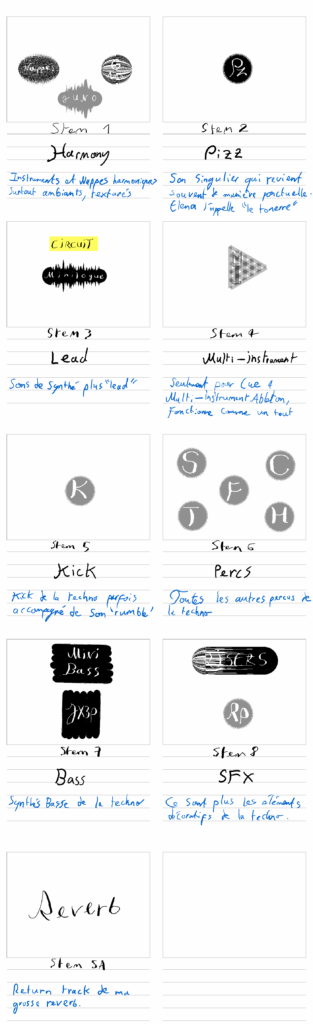 Nappes
JUNO
Stem 1
Harmony
Instruments et Nappes harmoniques
surtout ambiants, texturés
Pz
Stem 2
Pizz
Son singulier qui revient
souvent de manière ponctuelle.
Elena l'appelle "le tonerre"
CIRCUIT
Minilogue
Stem 3
Lead
Sons de Synthé plus "lead"
Stem 4
Multi-instrument
Seulement pour Cue 4
Multi-Instrument Ableton,
Fonctionne comme un tout
K
Stem 5
Kick
Kick de la techno parfois
accompagné de son 'rumble'
S
C
F
T
H
Stem 6
Percs
Toutes les autres percus de
la techno
Mini
Bass
JX3P
Stem 7
Bass
Synthés Basse de la techno
RISERS
Rp
Stem 8
SFX
Ce sont plus les éléments
décoratifs de la techno.
Reverb
Stem SA
Return track de ma
grosse reverb.